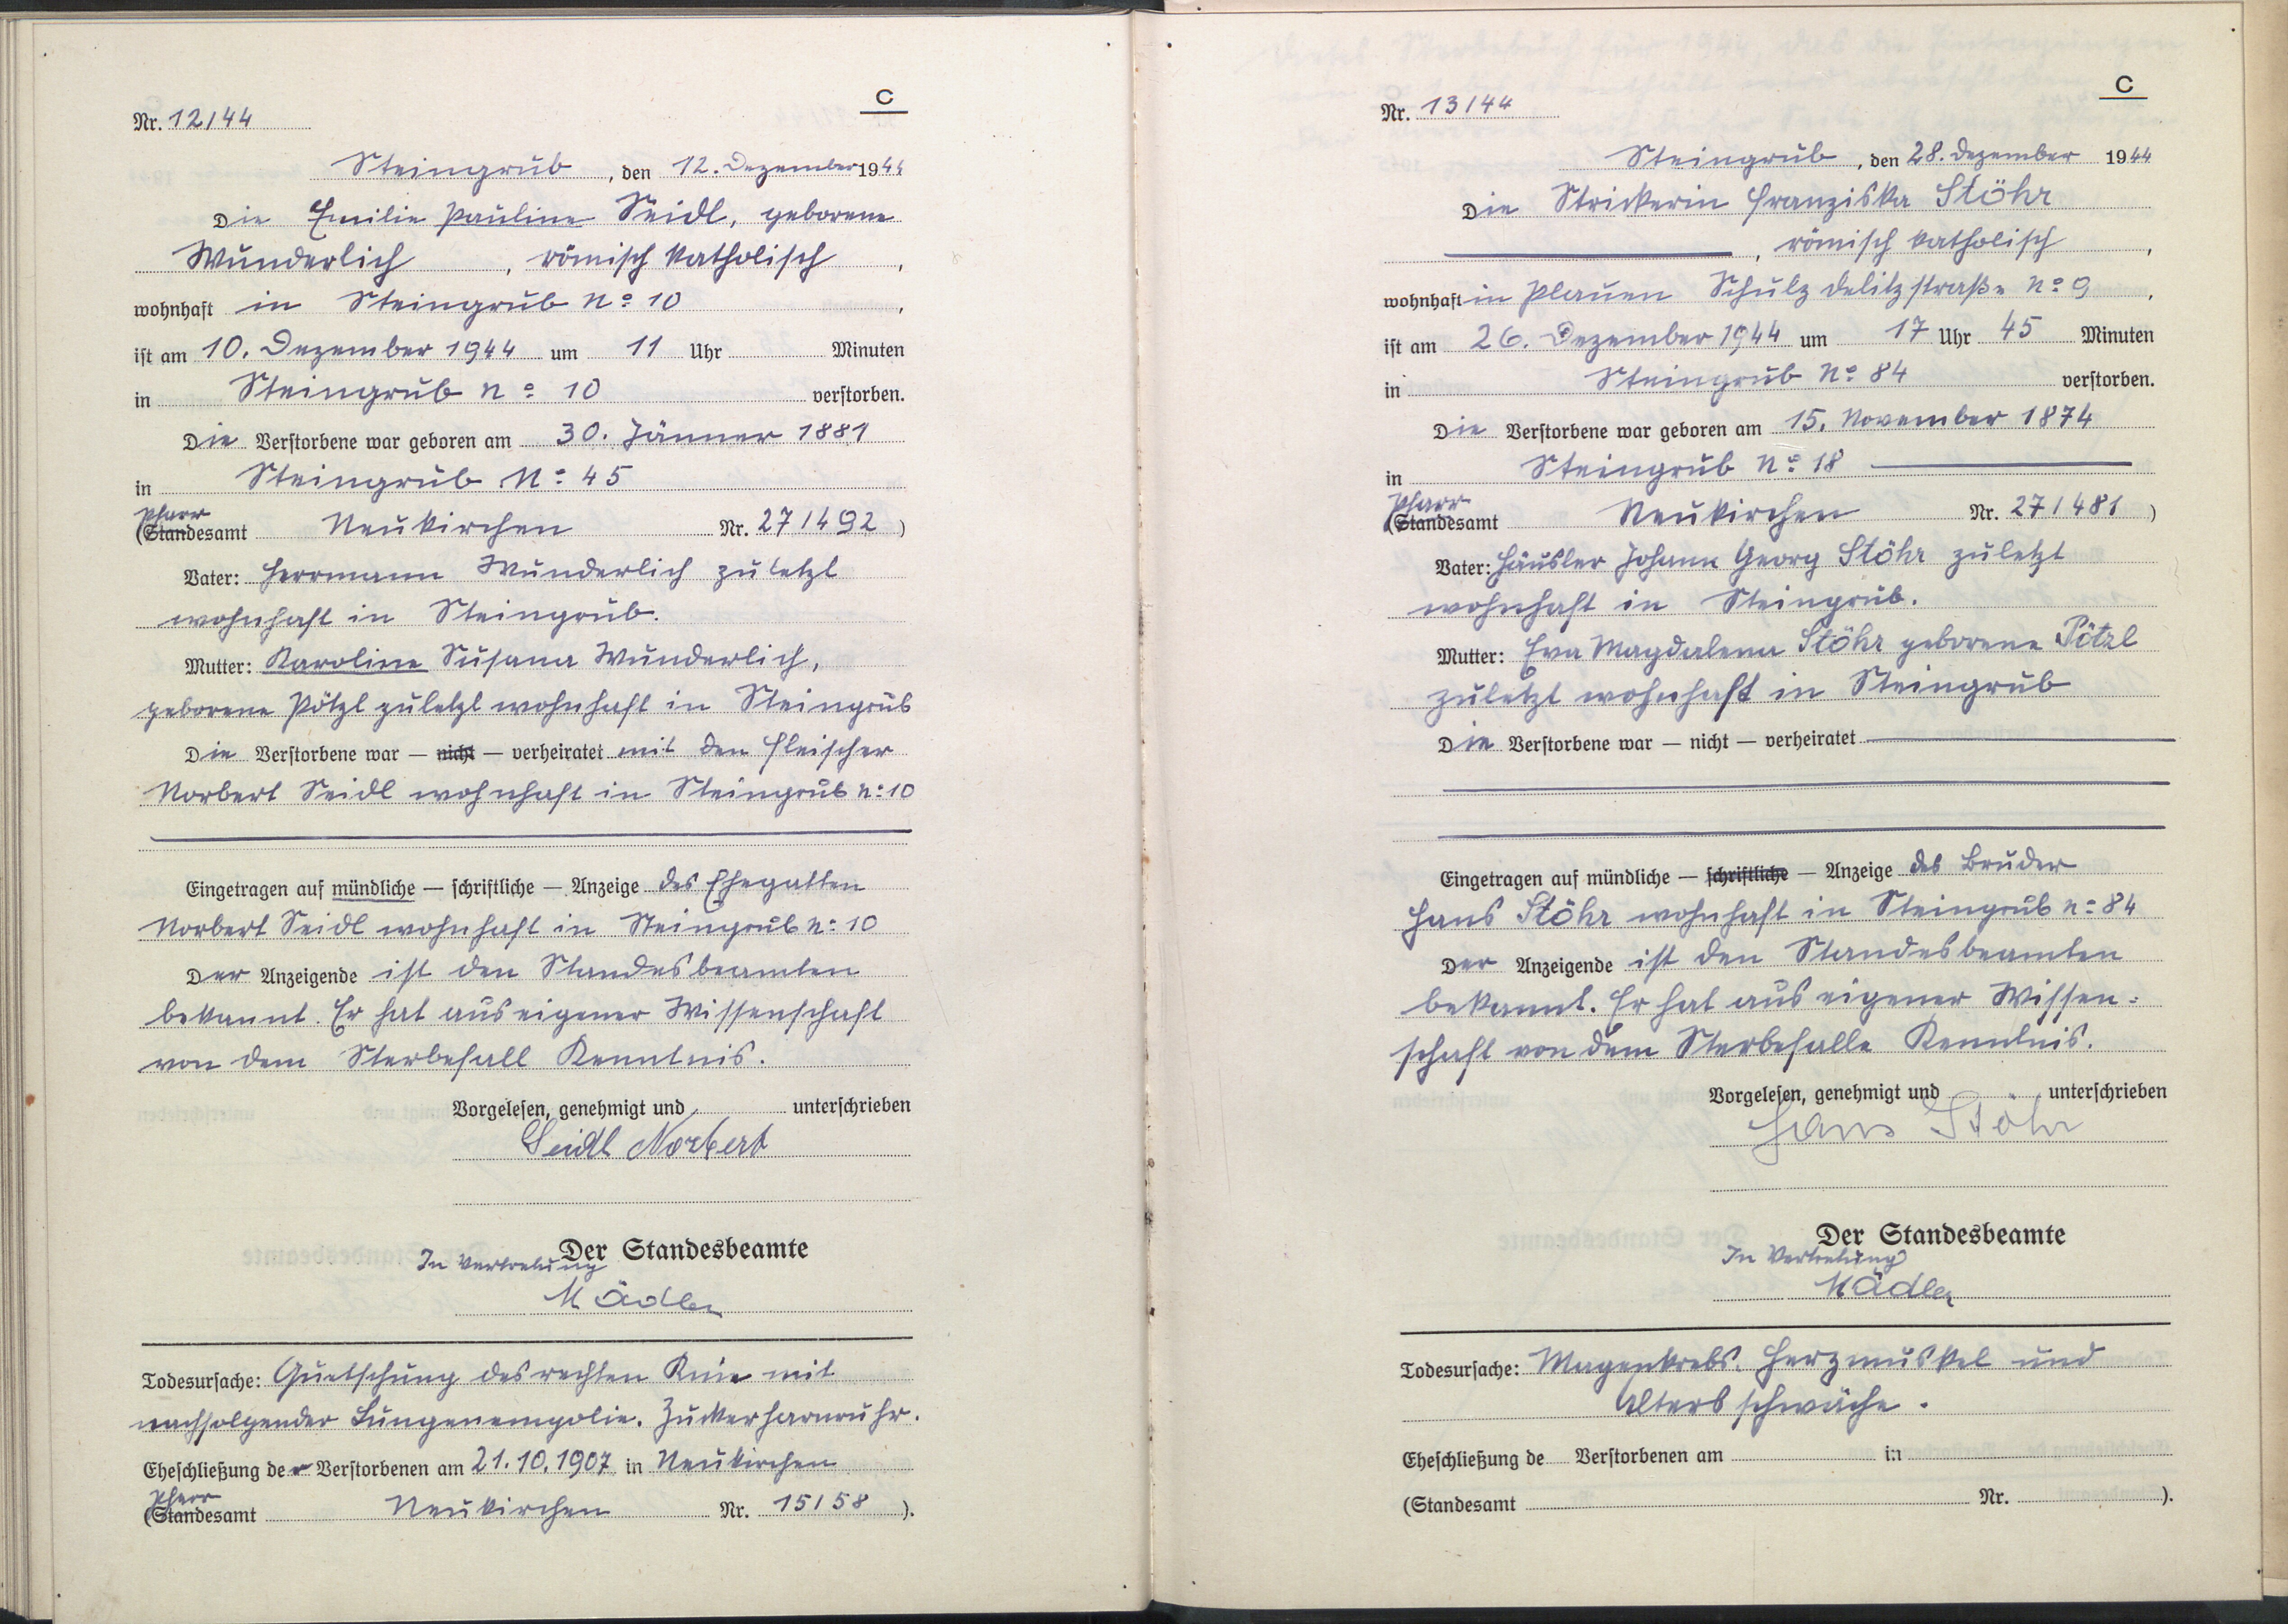 C
Nr. 12/44
Steingrub, den 12. Dezember 1944
Die Emilie Pauline Seidl, geborene
Wunderlich, römisch katholisch,
wohnhaft in Steingrub No 10,
ist am 10. Dezember 1944 um 11 Uhr Minuten
in Steingrub No 10 verstorben.
Die Verstorbene war geboren am 30. Jänner 1881
in Steingrub No 45
Pfarr
(Standesamt Neukirchen Nr. 27/492)
Vater: Herrmann Wunderlich zuletzt
wohnhaft in Steingrub.
Mutter: Karoline Susana Wunderlich,
geborene Pötzl zuletzt wohnhaft in Steingrub
Die Verstorbene war — nicht — verheiratet mit den Fleischer
Norbert Seidl wohnhaft in Steingrub No 10
Eingetragen auf mündliche — schriftliche — Anzeige des Ehegatten
Norbert Seidl wohnhaft in Steingrub No 10
Der Anzeigende ist den Standesbeamten
bekannt. Er hat aus eigener Wissenschaft
von dem Sterbefall Kenntnis.
Vorgelesen, genehmigt und unterschrieben
Seidl Norbert
Der Standesbeamte
In Vertretung
Mädler
Todesursache: Quetschung des rechten Knie mit
nachfolgender Lungenempolie. Zuckerharnruhr.
Eheschließung der Verstorbenen am 21.10.1907 in Neukirchen
Pfarr
(Standesamt Neukirchen Nr. 15/58).
C
Nr. 13/44
Steingrub, den 28. Dezember 1944
Die Strickerin Franziska Stöhr
, römisch katholisch,
wohnhaft in Plauen Schulz Delitzstraße No 9,
ist am 26. Dezember 1944 um 17 Uhr 45 Minuten
in Steingrub No 84 verstorben.
Die Verstorbene war geboren am 15. November 1874
in Steingrub No 18
Pfarr
(Standesamt Neukirchen Nr. 27/481)
Vater: Häusler Johann Georg Stöhr zuletzt
wohnhaft in Steingrub.
Mutter: Eva Magdalena Stöhr geborene Pötzl
zuletzt wohnhaft in Steingrub
Die Verstorbene war — nicht — verheiratet
Eingetragen auf mündliche — schriftliche — Anzeige des Bruder
Hans Stöhr wohnhaft in Steingrub No 84
Der Anzeigende ist den Standesbeamten
bekannt. Er hat aus eigener Wissen=
schaft von dem Sterbefalle Kenntnis.
Vorgelesen, genehmigt und unterschrieben
Hans Stöhr
Der Standesbeamte
In Vertretung
Mädler
Todesursache: Magenkrebs. Herzmuskel und
Altersschwäche.
Eheschließung de Verstorbenen am in
(Standesamt Nr. ).